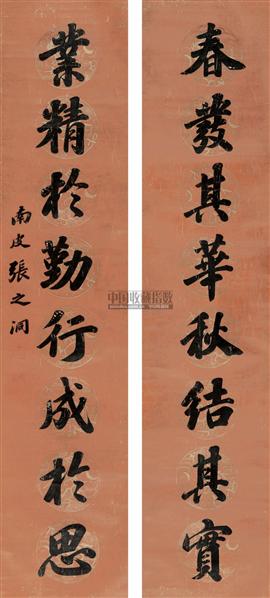 春發其華秋結其實
業精於勤行成於思
南皮張之洞
中国收藏指数